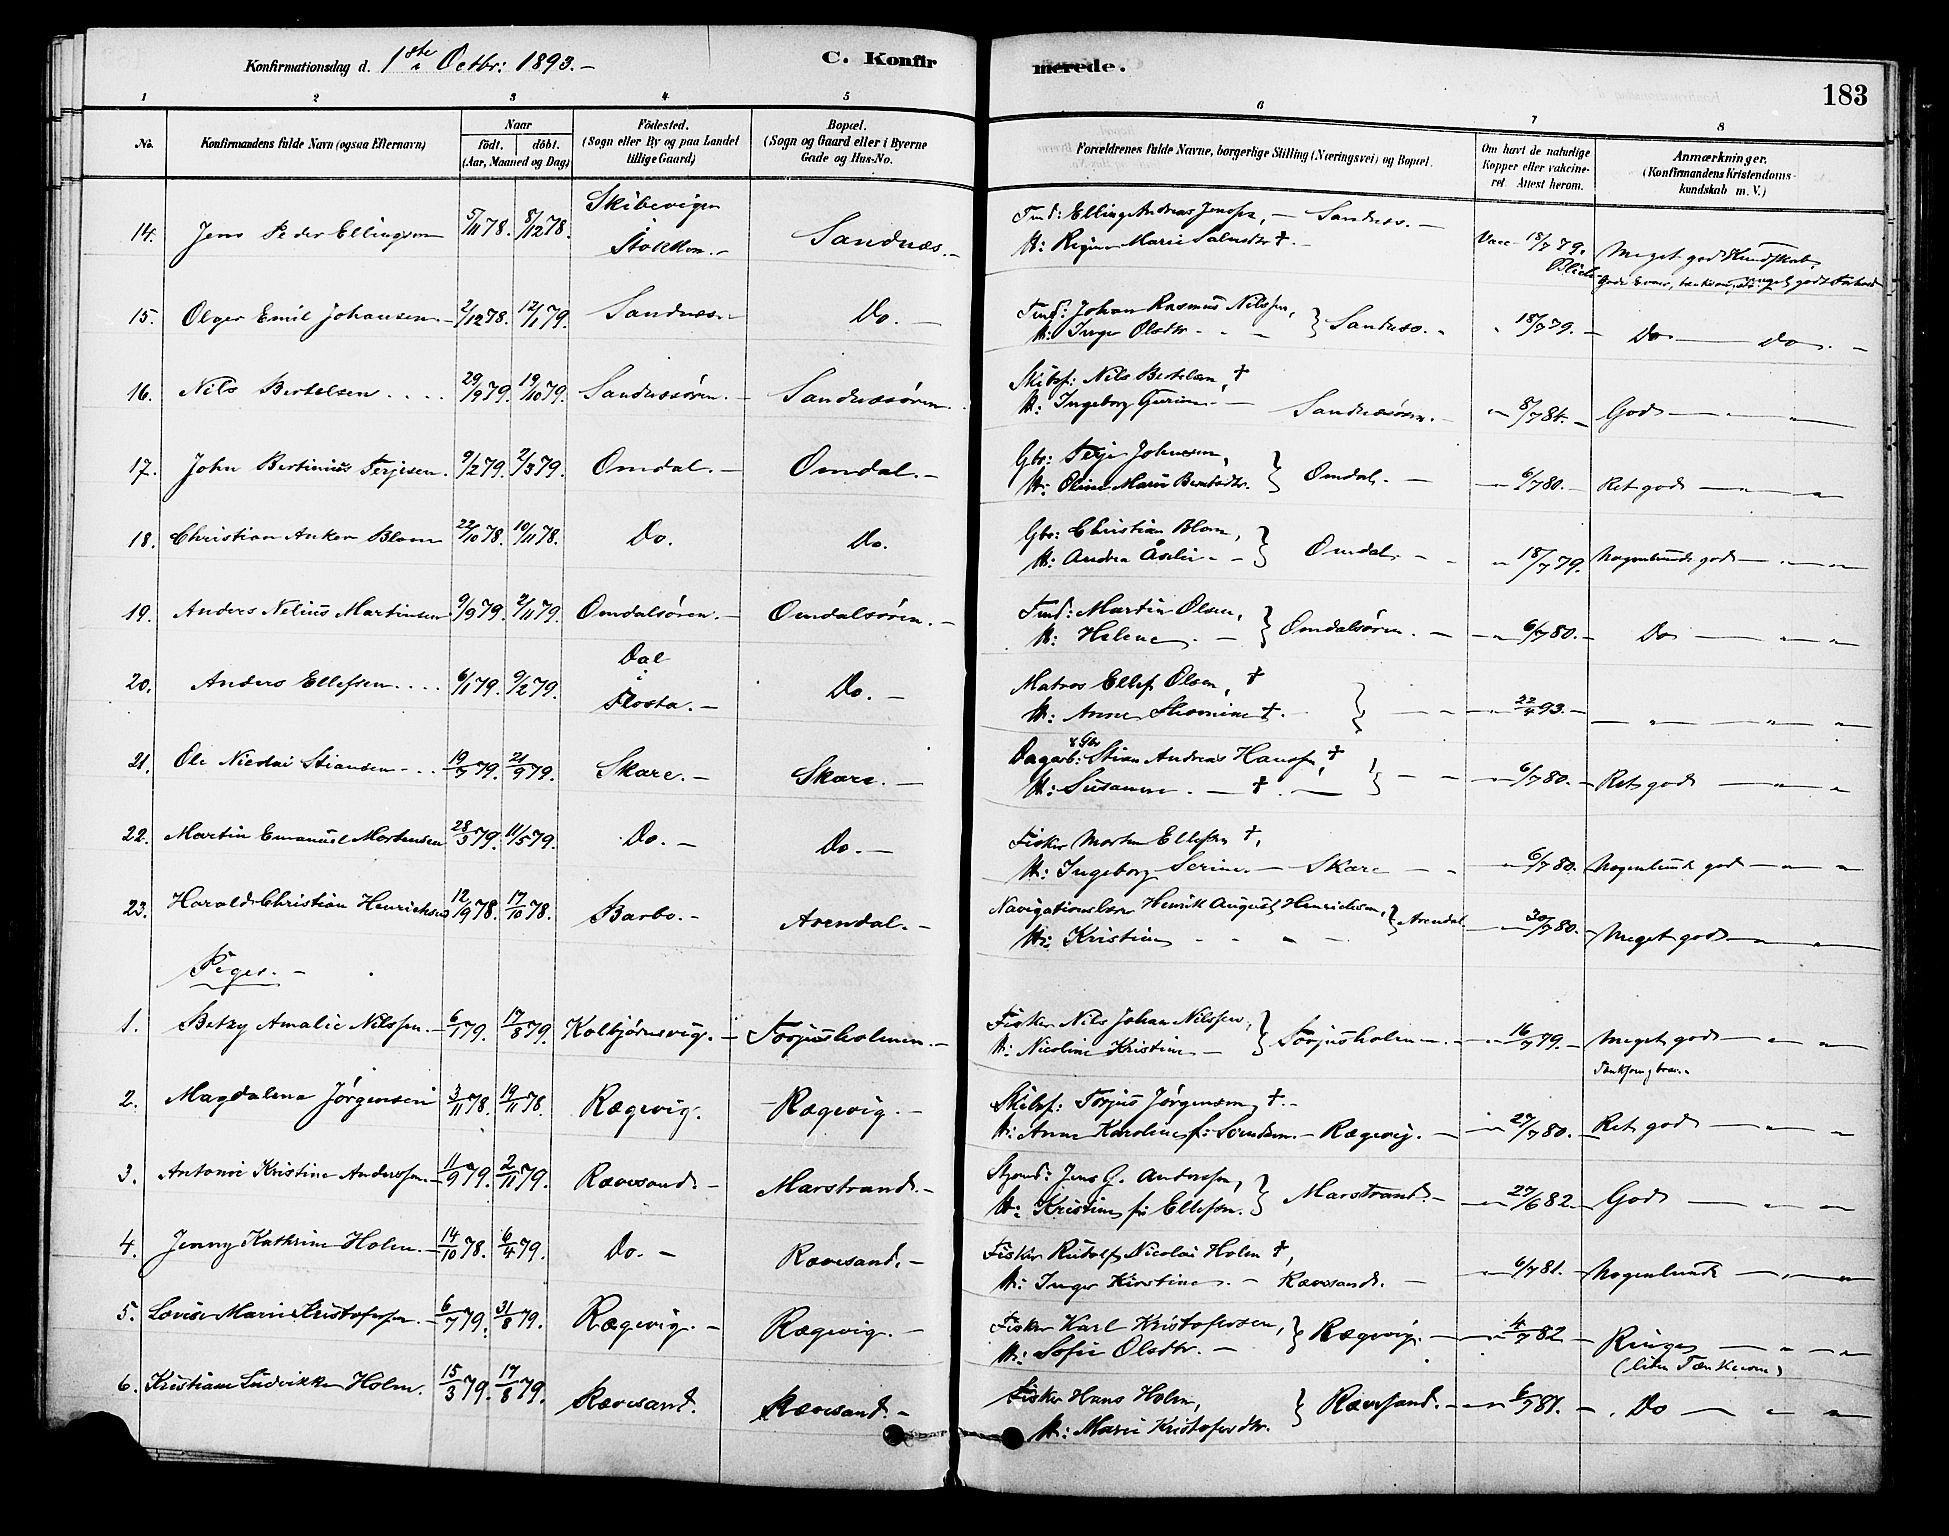 Konfirmationsdag d. 1ste Octbr: 1893. –
C. Konfirmerede.
183
1 2 3 4 5 6 7 8
No. Konfirmandens fulde Navn (ogsaa Efternavn) Naar födt. döbt. (Aar, Maaned og Dag) Födested. (Sogn eller By og paa Landet tillige Gaard) Bopæl. (Sogn og Gaard eller i Byerne Gade og Hus-No. Forældrenes fulde Navne, borgerlige Stilling (Næringsvei) og Bopæl. Om havt de naturlige Kopper eller vakcineret Attest herom. Anmærkninger. (Konfirmandens Kristendomskundskab m. V.)
14. Jens Peder Ellingsen 5/11 78. 8/12 78. Skibevigen i Stokken. – Sandnæs. – Tmd: Elling Andreas Jensen, – Sandnæs. –
H: Regine Marie Salvesdtr †. – Vacc. 18/7 79. Meget god Kundskab,
15. Olger Emil Johansen 2/12 78. 12/1 79. Sandnæs. Do. – Tmd: Johan Rasmus Nilssen,
H: Inger Olsdtr. } Sandnæs. 18/7 79. – Do – do. –
16. Nils Bertelsen 29/9 79. 19/10 79. Sandnæsøren. – Sandnæsøren. Skibsf: Nils Bertelsen, †
H: Ingeborg Gurine. – Sandnæsøren. – 8/7 84. – God
17. John Bertinius Terjesen. 9/2 79. 2/3 79. Omdal. – Omdal. – Gbr: Terje Johnsen,
H: Oline Marie Berntsdtr. } Omdal. – 6/7 80. – Ret god
18. Christian Anker Blom 22/10 78. 10/11 78. Do. Do. Gbr: Christian Blom,
H: Andrea Åsele } Omdal. 18/7 79. Nogenlunde god
19. Anders Nelius Martinsen 9/9 79. 2/11 79. Omdalsøren. – Omdalsøren. – Tmd: Martin Olsen,
H: Helene } Omdalsøren. – 6/7 80. – Do
20. Anders Ellefsen 6/1 79. 9/2 79. Dal i Flosta. – Do. – Matros Ellef Olsen, †
H: Anne †. 22/4 93. –
21. Ole Nicolai Stiansen 19/7 79. 21/9 79. Skare. – Skare. – Dagarb: & Gbr Stian Andreas Hansen †,
H: Susanne. – †. 6/7 80. – Ret god
22. Martin Emanuel Mortensen 28/3 79. 11/5 79. Do. – Do. – Fisker Morten Ellefsen †,
H: Ingeborg Serine – Skare 6/7 80. Nogenlunde god
23. Harald Christian Henrichsen 12/9 78. 17/10 78. Barbo. – Arendal. – Navigationslærer Henrik August Henrichsen,
H: Kristine } Arendal 30/7 80. – Meget god
Piger. –
1. Betzy Amalie Nilssen. 6/1 79. 17/8 79. Kolbjørnsvig. – Torjusholmen. – Fisker Nils Johan Nilssen,
H: Nicoline Kristine } Torjusholmen. – 16/7 79. – Meget god
2. Magdalena Jørgensen 3/11 78. 19/11 78. Rægevig. Rægevig. – Skibsf: Torjus Jørgensen, †. –
H: Anne Karoline f: Svendsen. – Rægevig. – 27/7 80. – Ret god
3. Antonie Kristine Anderssen. 11/9 79. 2/11 79. Rævesand. – Marstrand. – Styrmd: Jens G. Anderssen,
H: Kristine f: Ellefsen. } Marstrand. – 27/6 82. – God
4. Jenny Kathrine Holm. 14/10 78. 6/4 79. Do. – Rævesand. – Fisker Rudolf Nicolai Holm †,
H: Inger Kirstine. – Rævesand. – 6/7 81. – Nogenlunde
5. Lovise Marie Kristofersen. 6/7 79. 31/8 79. Rægevig. – Rægevig. – Fisker Karl Kristofersen,
H: Sofie Olsdtr. – } Rægevig. – 4/7 82 – Ringe
(liten Tænkeevne)
6. Kristiane Ludvikke Holm. 15/3 79. 17/8 79. Rævesand. Rævesand. – Fisker Hans Holm,
H: Marie Kristofersdtr. } Rævesand. – 6/7 81. – Do